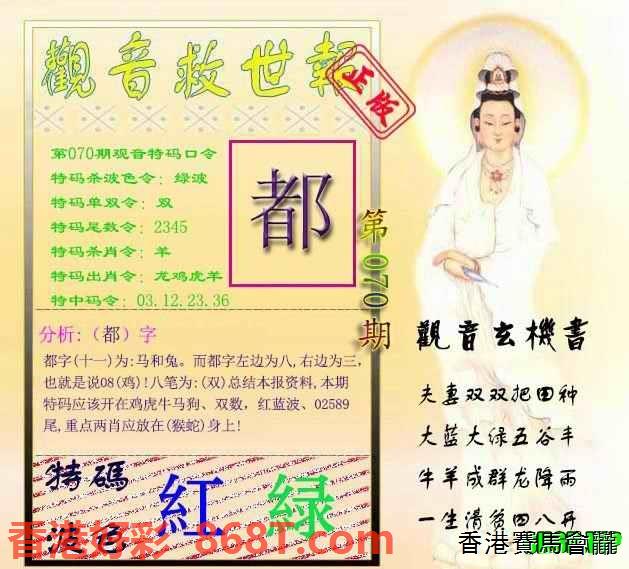 觀音救世報
正版
第070期观音特码口令
特码杀波色令：绿波
特码单双令：双
特码尾数令：2345
特码杀肖令：羊
特码出肖令：龙鸡虎羊
特中码令：03.12.23.36
都
第070期
分析:（都）字
都字(十一)为:马和兔。而都字左边为八,右边为三，
也就是说08(鸡)!八笔为:(双)总结本报资料,本期
特码应该开在鸡虎牛马狗、双数，红蓝波、02589
尾,重点两肖应放在(猴蛇)身上!
特碼
波色
紅 绿
觀音玄機書
夫妻双双把田种
大蓝大绿五谷丰
牛羊成群龙降雨
一生清贫四八开
香港好彩-868T.com
香港賽馬會